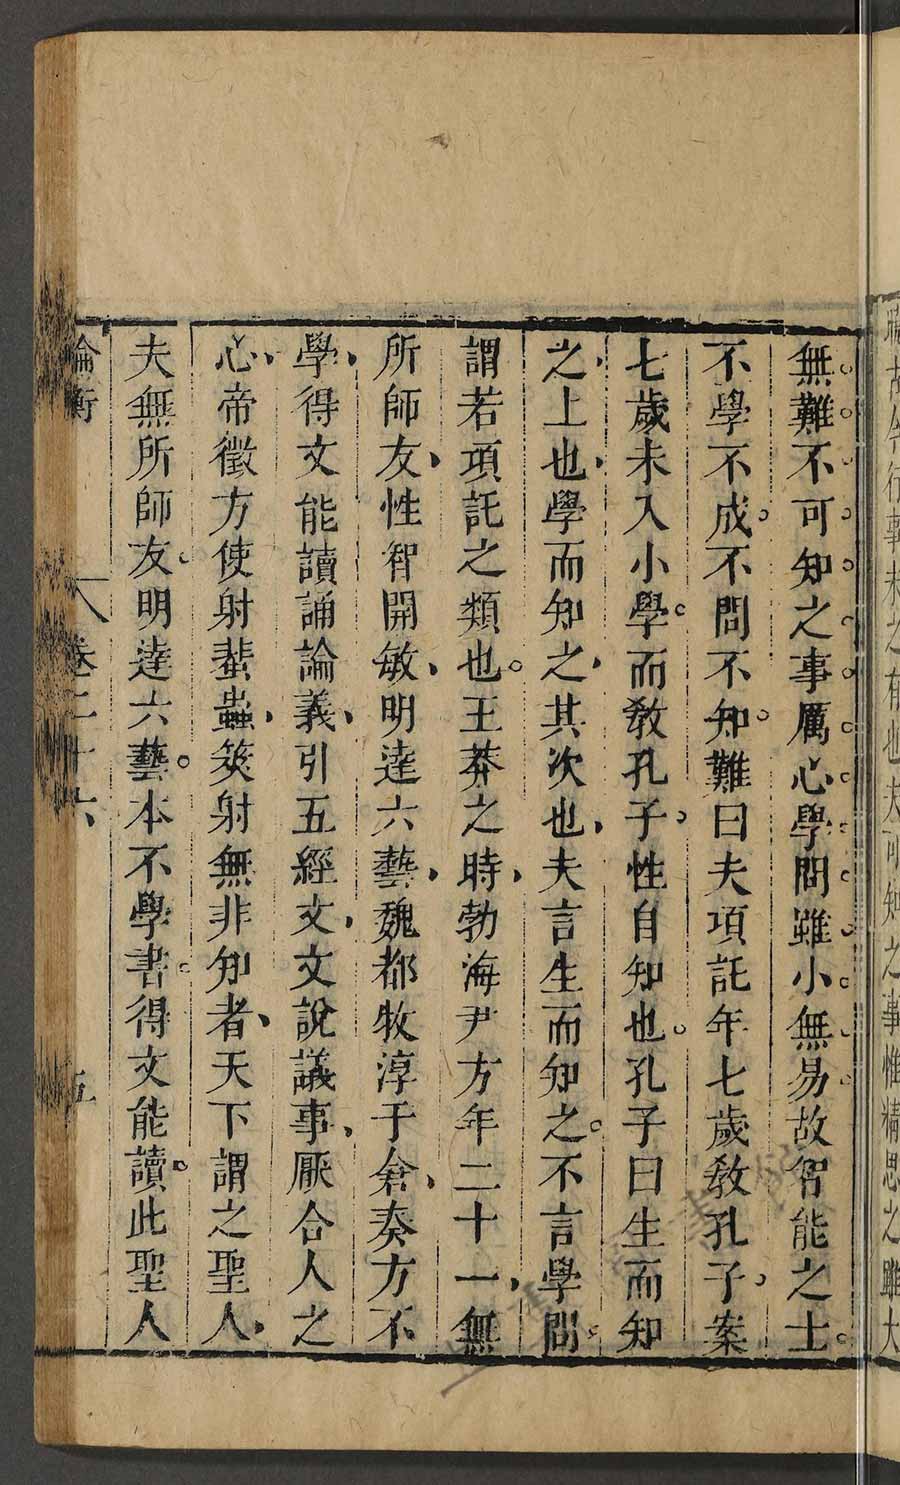 職故今行事未之有也夫可知之事惟精思之雖大
無難不可知之事厲心學問雖小無易故智能之士
不學不成不問不知難曰夫項託年七歲敎孔子案
七歲未入小學而敎孔子性自知也孔子曰生而知
之上也學而知之其次也夫言生而知之不言學問
謂若項託之類也王莽之時勃海尹方年二十一無
所師友性智開敏明達六藝魏都牧淳于倉奏方不
學得文能讀誦論義引五經文文說議事厭合人之
心帝徵方使射蜚蟲筴射無非知者天下謂之聖人
夫無所師友明達六藝本不學書得文能讀此聖人
論衡 卷二十六 五